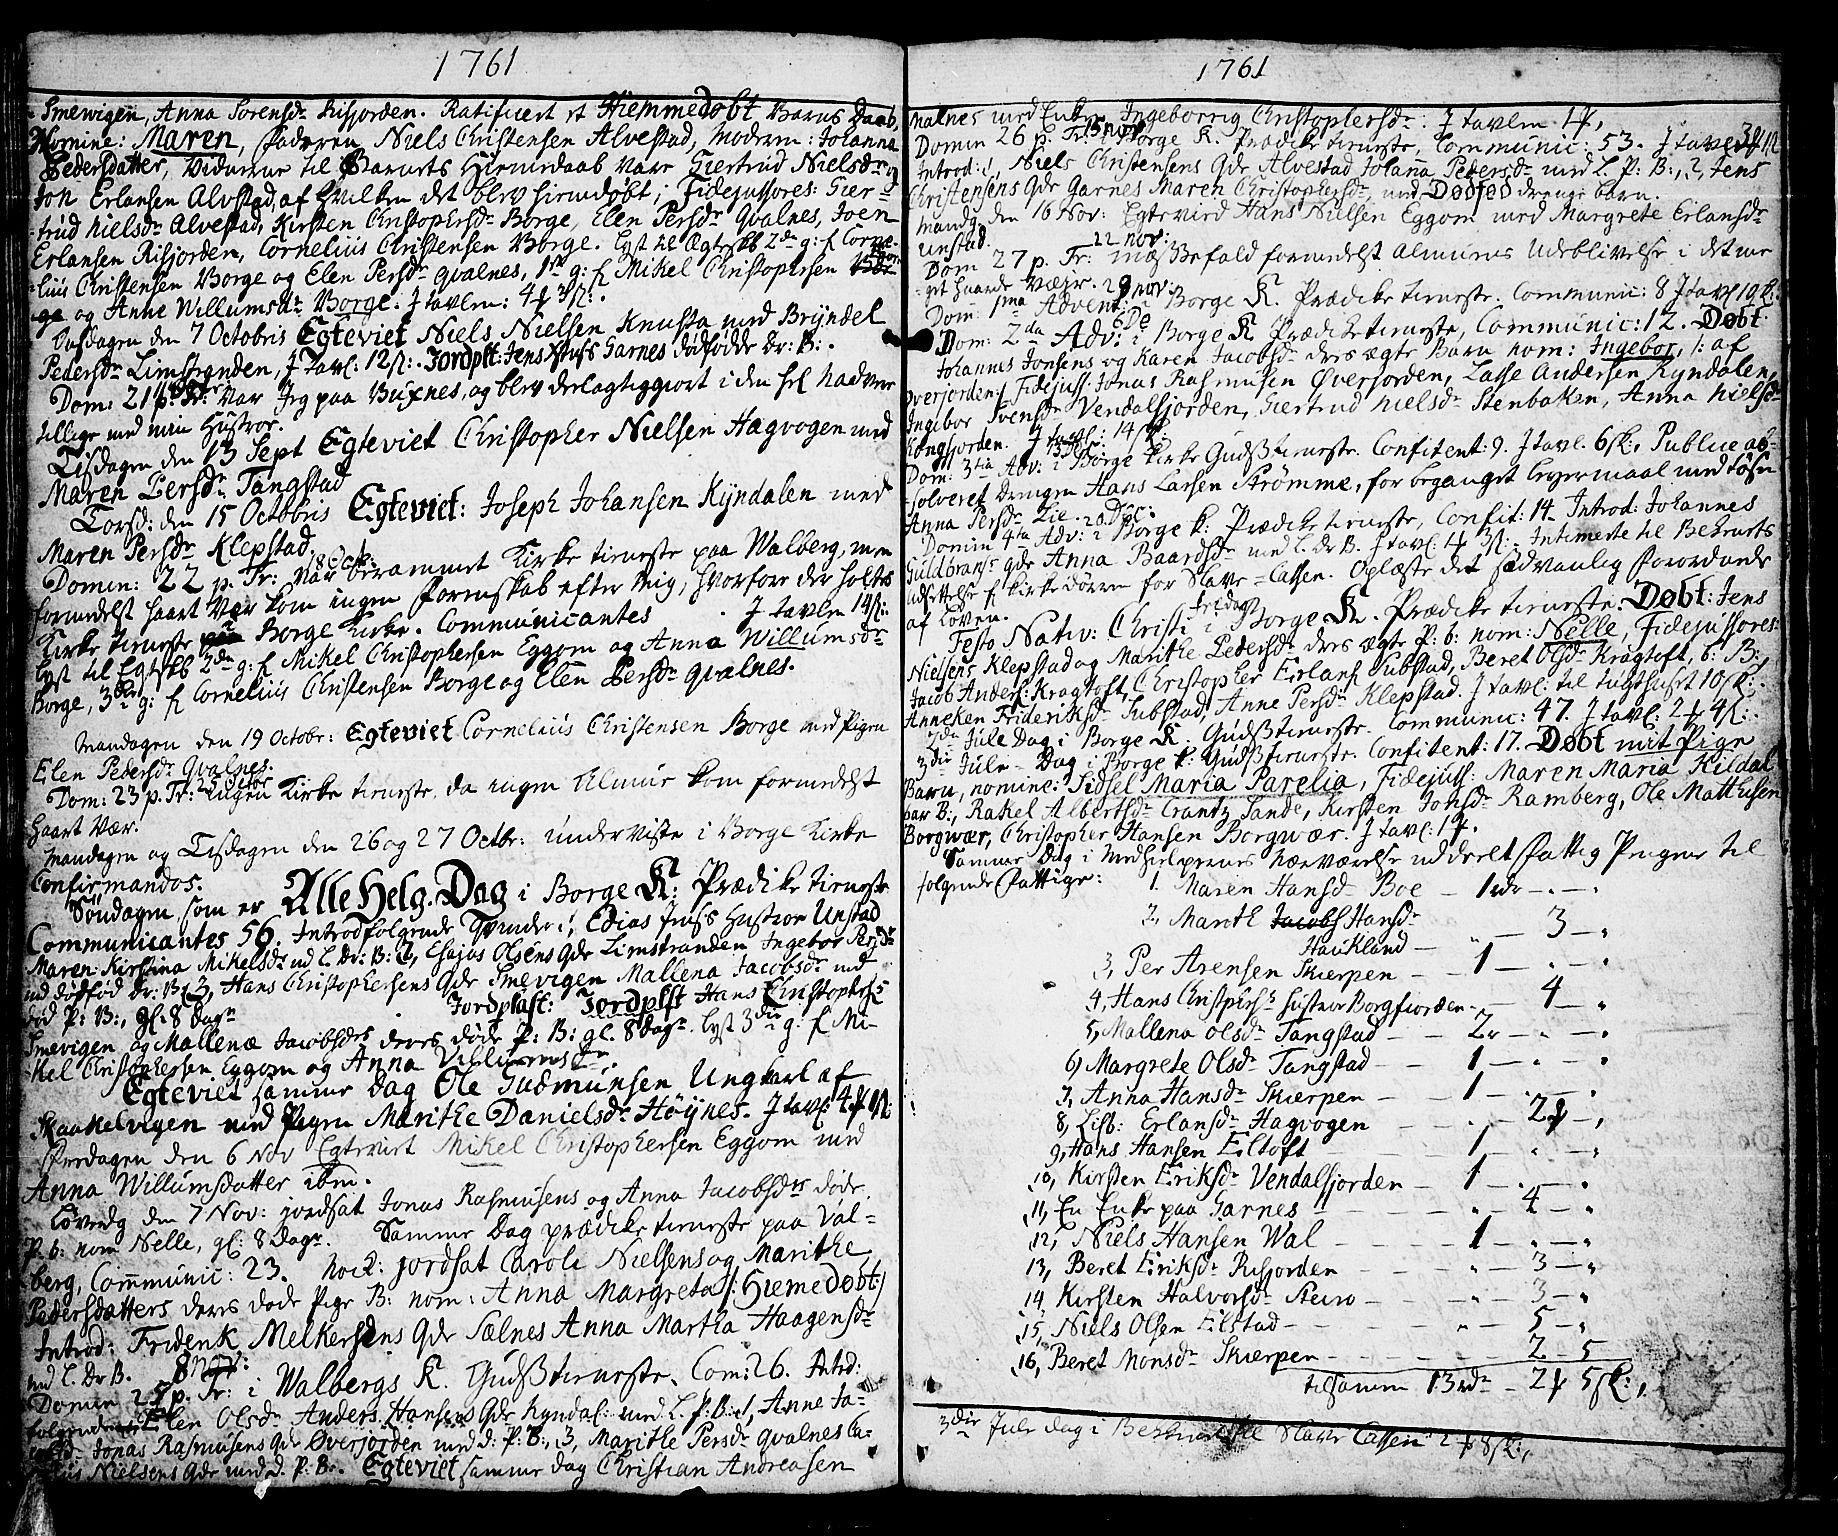 1761
Smewigen, Anna Sorensdr Risfjorden. Ratificert et Hiemmedøbt Barns Daab,
Nomine: Maren, Faderen Niels Christensen Alvestad, Moderen: Johanna
Pedersdatter, Vidnerne til Barnets Hiemedaab vare Giertrud Nielsdr og
Jon Erlansen Alvstad, af hvilken det blev hiemdøbt; Fidejussores: Gier-
trud Nielsdr Alvestad, Kirsten Christophersdr Borge, Elen Persdr Qvalnes, Joen
Erlansen Risfjorden, Cornelius Christensen Borge. Lyst til Ægteskb 2den g: f Corne-
lius Christensen Borge og Elen Persdr Qvalnes, 1ste g: f Mikel Christophersen
og Anne Willumsdr Borge. J tavlen: 4 ß 3 ſk:.
Onsdagen den 7 Octobris Egteviet Niels Nielsen Knutsta med Bryndel
Pedersdr Limstranden, J Tavl: 12 ſk:. Jordpst: Jens Xstuss Garnes dødfødde Dr: B:.
Dom: 21 p. Tr: var Jeg paa Buxnes, og blev delagtiggiort i den hel Nadver
tillige med min Hustroe.
Tisdagen den 13 Sept Egteviet Christopher Nielsen Hægvogen med
Maren Persdr Tangstad
Torsd: den 15 Octobris Egteviet: Joseph Johansen Kyndalen med
Maren Persdr Klepstad.
18 Oct:
Domin: 22 p. Tr: var berammet Kirke tieneste paa Walberg, men
formedelst haart Vær kom ingen Formskab efter mig, hvorfore der holtes
Kirke tieneste Borge Kirke. Communicantes . J tavlen 14 ſk:
Lyst til Egteskb 2den g: f Mikel Christophersen Eggom og Anna Willumsdr
Borge, 3die g: f Cornelius Christensen Borge og Elen Persdr Qvalnes.
Mandagen den 19 Octobr: Egteviet Cornelius Christensen Borge med Pigen
Elen Pedersdr Qvalnes.
25 Octbr
Dom: 23 p. Tr: ingen Kirke tieneste, da ingen Almue kom formedelst
haart Vær.
Mandagen og Tisdagen den 26 og 27 Octbr: underviste i Borge Kirke
Confirmandos.
Søndagen, som er Alle Helg. Dag i Borge K: Prædike tieneste
Communicantes 56. Introd folgende Qvinder: 1, Edias Jenss Hustroe Unstad
Maren Kirstina Mikelsdr md L. Dr: B: 2, Esajas Olsens Qde Limstranden Ingebor Persdr
md dødfød Dr: B: 3, Hans Christophersens Qde Smevigen Mallena Jacobsdr md
død P: B:, gl: 8 Dagr. Jordpåst: Jordplst Hans Christophers
Smevigen og Mallenæ Jacobsdrs deres døde P: B: gl. 8 dagr. Lyst 3die g: f Mi-
kel Christophersen Eggom og Anna Villumsdr.
Egteviet samme dag Ole Gudmunsen Ungkarl af
Skaakelvigen med Pigen Marithe Danielsdr Høynes. J tavl: 4 ß 1 ſk:
Fredagen den 6 Nov Egteviet Mikel Christophersen Eggom med
Anna Willumsdatter ibm.
Løverdg den 7 Nov: jordsat Jonas Rasmusens og Anna Jacobsdrs døde
P. b: nom Nelle, gl: 8 Dagr. Samme Dag prædike tieneste paa Val-
berg, Communic: 23. Nock: jordsat Caroli Nielsens og Marithe
Pedersdatters deres døde Pige B: nom: Anna Margreta /: Hiemedøbt:/
Introd: Friderik Melkersens Qde Sælnes Anna Martha Haagensdr
md L. Dr B. 8 Nov:
Domin 25 p. Tr: i Walbergs K. Gudßtieneste, Com: 26. Introd:
folgende Elen Olsdr Anders Hansens Qde Kyndal: med L. P: B: 1, Anne Ja-
cobsdr Jonas Rasmusens Qde Øverfjorden med d: P: B:, 3, Marithe Persdr Qvalnes Ca-
rolus Nielsens Qde med d. P: B:. Egteviet samme dag Christian Andreasen
1761
Malnes med Enken Ingeborrig Christophersdr. J tavlen 1 ß,
15 nov
Domin 26 p. Tr: i Borge K. Prædike tieneste, Communic: 53. J tavl 3 ß 1 ſk
Introd: 1, Niels Christensens Qde Alvestad Johana Pedersdr med L. P: B:, 2, Jens
Christensens Qde Garnes Maren Christophersdr, med Dødfød drenge barn.
Mandg den 16 Nov: Egteviet Hans Nielsen Eggom med Margrete Erlansdr
Unstad. 22 nov:
Dom 27 p. Tr: Mæßefald formedelst Almuens Udeblivelse i det me-
get haarde Vejr. 29 nov:
Dom: 1ma Advent: i Borge K. Prædike tieneste. Communic: 8 J tavl 19 ſk:
6 De
Dom: 2da Adv: i Borge K Prædike tieneste, Communic: 12. Døbt:
Johannes Jonsens og Karen Jacobsdr deres ægte Barn nom: Ingebor, /: af
Overjorden:/ Fidejuss: Jonas Rasmusen Øverjorden, Lasse Andersen Kyndalen,
Ingebor Svensdr Vendalsjorden, Giertrud Nielsdr Stenbaken, Anna Nielsdr
Kongsjorden. J tavl: 14 ſk:
Dom: 3tia Adv: i Borge Kirke Gudßtieneste. Confitent: 9. J tavl. 6 ſk:, Publice ab-
solveret Drengen Hans Larsen Strømme, for begangst Leyermaal med Løsn
Anna Persdr Lie. 20 Dec:
Domin 4ta Adv: i Borge k: Prædike tieneste, Confit: 14. Introd: Johannes
Guldbrans: Qde Anna Baardsdr med L. Dr B. J tavl: 1 ß 3 ſk:. Intimerte til Bekinets
udsettelse f kirke dørren for Slave-Cassen. Oplæste det sædvanlig Forordnede
af Loven. fredag
Festo Nativ: Christi i Borge K. Prædike tieneste. Døbt: Jens
Nielsens Klepstad og Marithe Pedersdr deres ægte P: b: nom: Nelle, Fidejussores:
Jacob Anders: Kragtoft, Christopher Erlans: Substad, Beret Olsdr Kragtoft, b: B:,
Anneken Frideriksdr Substad, Anne Persdr Klepstad. J tavl: til tugthuset 10 ſk:.
2den Jule Dag i Borge K. Gudßtieneste. Communic: 47. J tavl: 2 ß 4 ſk:.
3die Jule-Dag i Borge k: Gudßtieneste. Confitent: 17. Døbt mit Pige
Barn, nomine: Sidsel Maria Parelia, Fidejuss: Maren Maria Kildal
bar B:, Rakel Albertsdr Crantz Sande, Kirsten Jonsdr Ramberg, Ole Matthisen
Borgwær, Christopher Hansen Borgwær. J tavl: 1 ß.
Samme Dag i Medhielpernes Nærværelse uddeelt Fattig Pengene til
folgende Fattige: 1. Maren Hansdr Boe — 1 rdr — . — .
2, Marith Jacobs Hansdr
Haukland — „ — 3 — „
3, Per Arensen Skierpen — 1 — . — .
4, Hans Christphers: hustroe Borgfiorden — . — 4 — „
5, Mallena Olsdr Tangstad — 2 r — . — .
6, Margrete Olsdr Tangstad — 1 — . — .
7, Anna Hansdr Skierpen — 1 — . — .
8, Lisb: Erlansdr Hagvogen — . — 2 ß — ,
9, Hans Hansen Eiltoft — 1 — . — „
10, Kirsten Eriksdr Vendalsjorden — 1 — . — .
11, En Enke paa Garnes — „ — 4 — „
12, Niels Hansen Wal — 1 — „ — „
13, Beret Eriksdr Risjorden — „ — 3 — „
14. Kirsten Halvorsdr Steiro — „ — 3 — „
15, Niels Olsen Eilstad — „ — 5 — „
16, Beret Monsdr Skierpen — — 2 — 5
tilsamen 13 rdr — 2 ß 5 ſk:,
3die Jule dag i Slave Cassen 2 ß 8 ſk:,